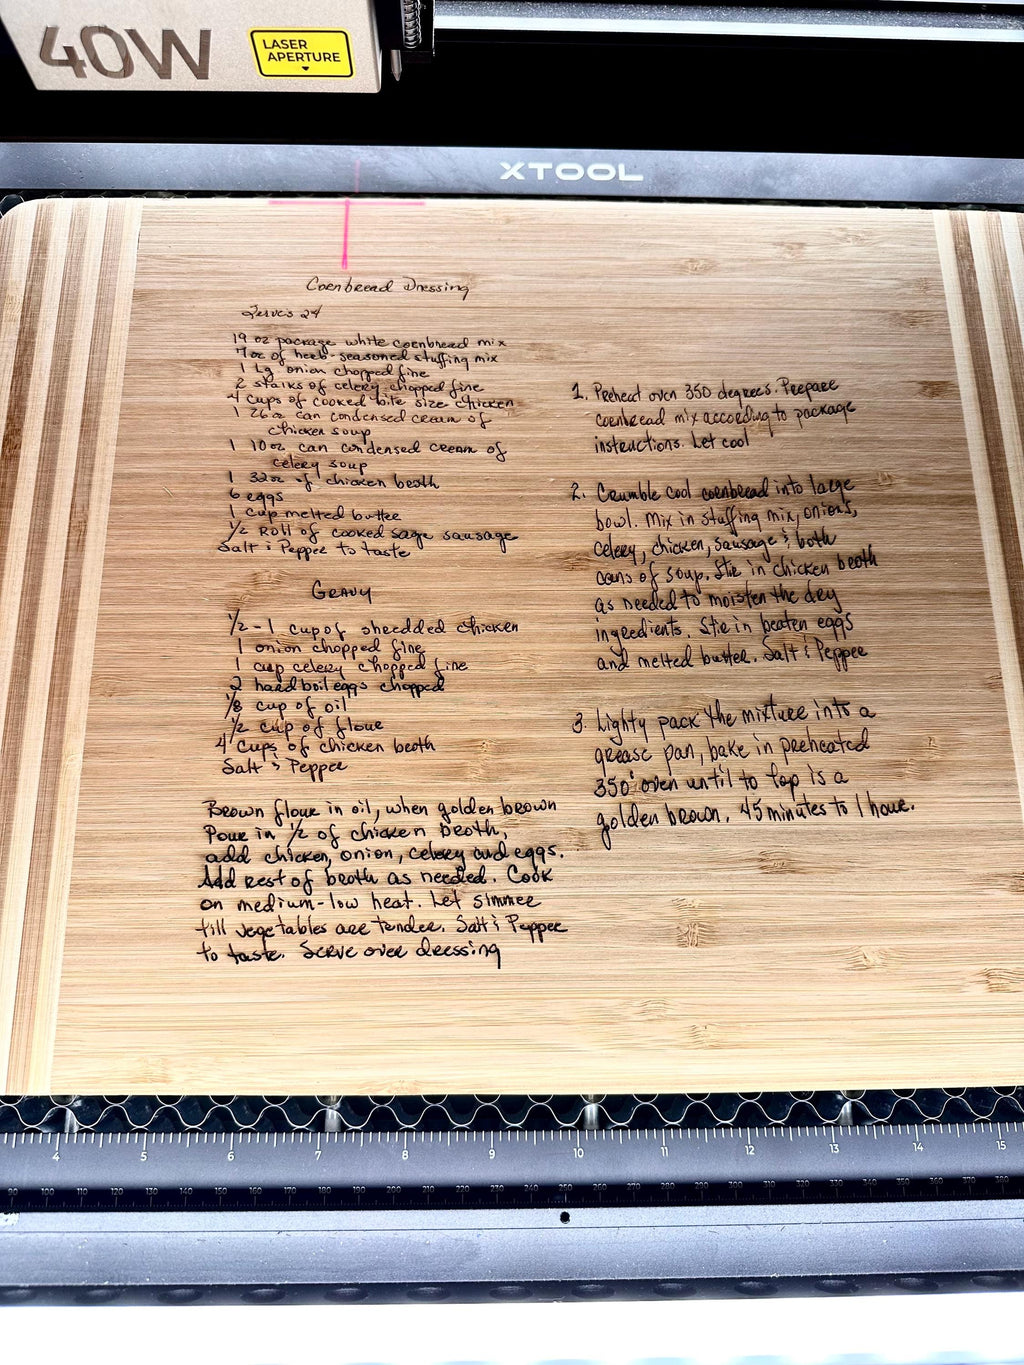 40W
LASER
APERTURE
XTOOL
Cornbread Dressing
Serves 24
19 oz package white cornbread mix
7oz of herb-seasoned stuffing mix
1 Lg onion chopped fine
2 stalks of celery chopped fine
4 cups of cooked bite size chicken
1 26oz can condensed cream of
chicken soup
1 10oz can condensed cream of
celery soup
1 32oz of chicken broth
6 eggs
1 cup melted butter
1/2 Roll of cooked sage sausage
Salt & Pepper to taste
Gravy
1/2-1 cup of shredded chicken
1 onion chopped fine
1 cup celery chopped fine
2 hard boil eggs chopped
1/8 cup of oil
1/2 cup of flour
4 Cups of chicken broth
Salt & Pepper
Brown flour in oil, when golden brown
Pour in 1/2 of chicken broth,
add chicken, onion, celery and eggs.
Add rest of broth as needed. Cook
on medium-low heat. Let simmer
till vegetables are tender. Salt & Pepper
to taste. Serve over dressing
1. Preheat oven 350 degrees. Prepare
cornbread mix according to package
instructions. Let cool
2. Crumble cool cornbread into large
bowl. Mix in stuffing mix, onions,
celery, chicken, sausage & both
cans of soup. Stir in chicken broth
as needed to moisten the dry
ingredients. Stir in beaten eggs
and melted butter. Salt & Pepper
3. Lighty pack the mixture into a
grease pan, bake in preheated
350° oven until to top is a
golden brown. 45 minutes to 1 hour.
4 5 6 7 8 9 10 11 12 13 14 15
90 100 110 120 130 140 150 160 170 180 190 200 210 220 230 240 250 260 270 280 290 300 310 320 330 340 350 360 370 380